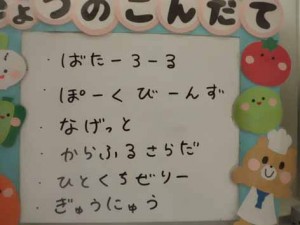 きょうのこんだて
・ばたーろーる
・ぽーくびーんず
・なげっと
・からふるさらだ
・ひとくちぜりー
・ぎゅうにゅう